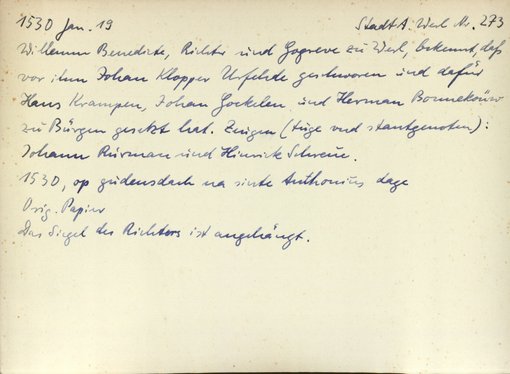 1530 Jan. 19 StadtA. Werl Nr. 273
Willemm Benedite, Richter und Gogreve zu Werl, bekennt, daß
vor ihm Johan Klopper Urfehde geschworen und dafür
Hans Krampen, Johan Gockelen und Herman
zu Bürgen gesetzt hat. Zeugen (tüge vnd stantgenoten):
Johann Rürman und Hinrick Schreue.
1530, op gudensdach na sinte Anthonius dage
Orig. Papier
Das Siegel des Richters ist angehängt.